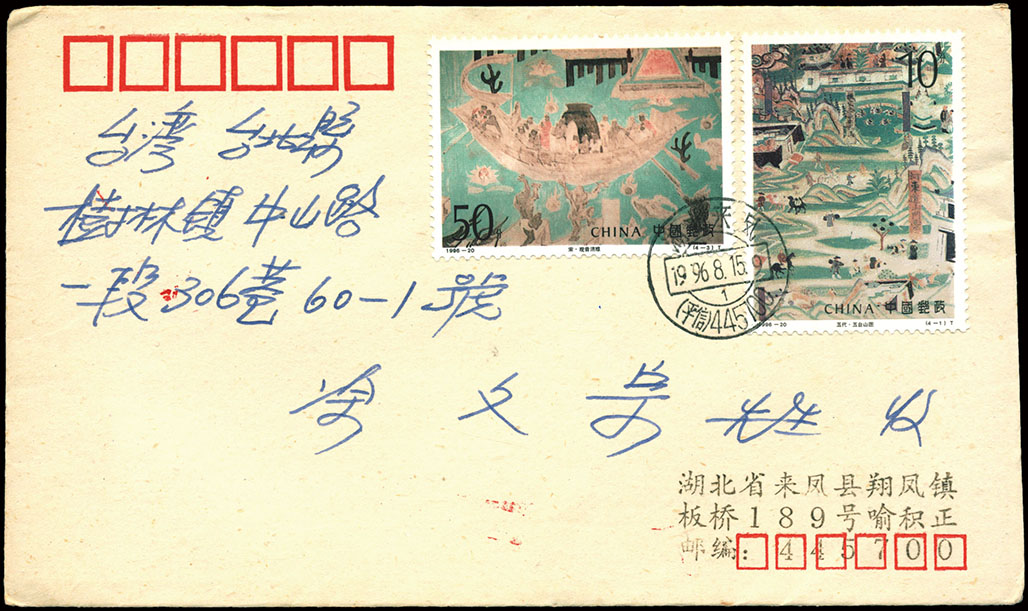 台灣 台北縣
樹林鎮中山路
一段306巷60-1號
文 先生 收
50
CHINA 中國郵政
1996-20
宋·观音济难
(4-3)T
10
CHINA 中國郵政
1996-20
五代·五台山图
(4-1)T
1996.8.15
1
(平信)445700
湖北省来凤县翔凤镇
板桥189号喻积正
邮编:445700